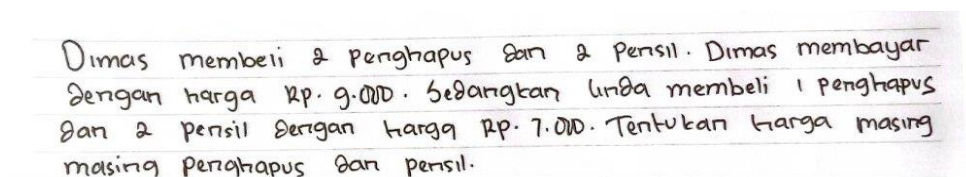 Dimas membeli 2 penghapus dan 2 pensil. Dimas membayar
dengan harga Rp. 9.000. Sedangkan linda membeli 1 penghapus
dan 2 pensil dengan harga Rp. 7.000. Tentukan harga masing
masing penghapus dan pensil.